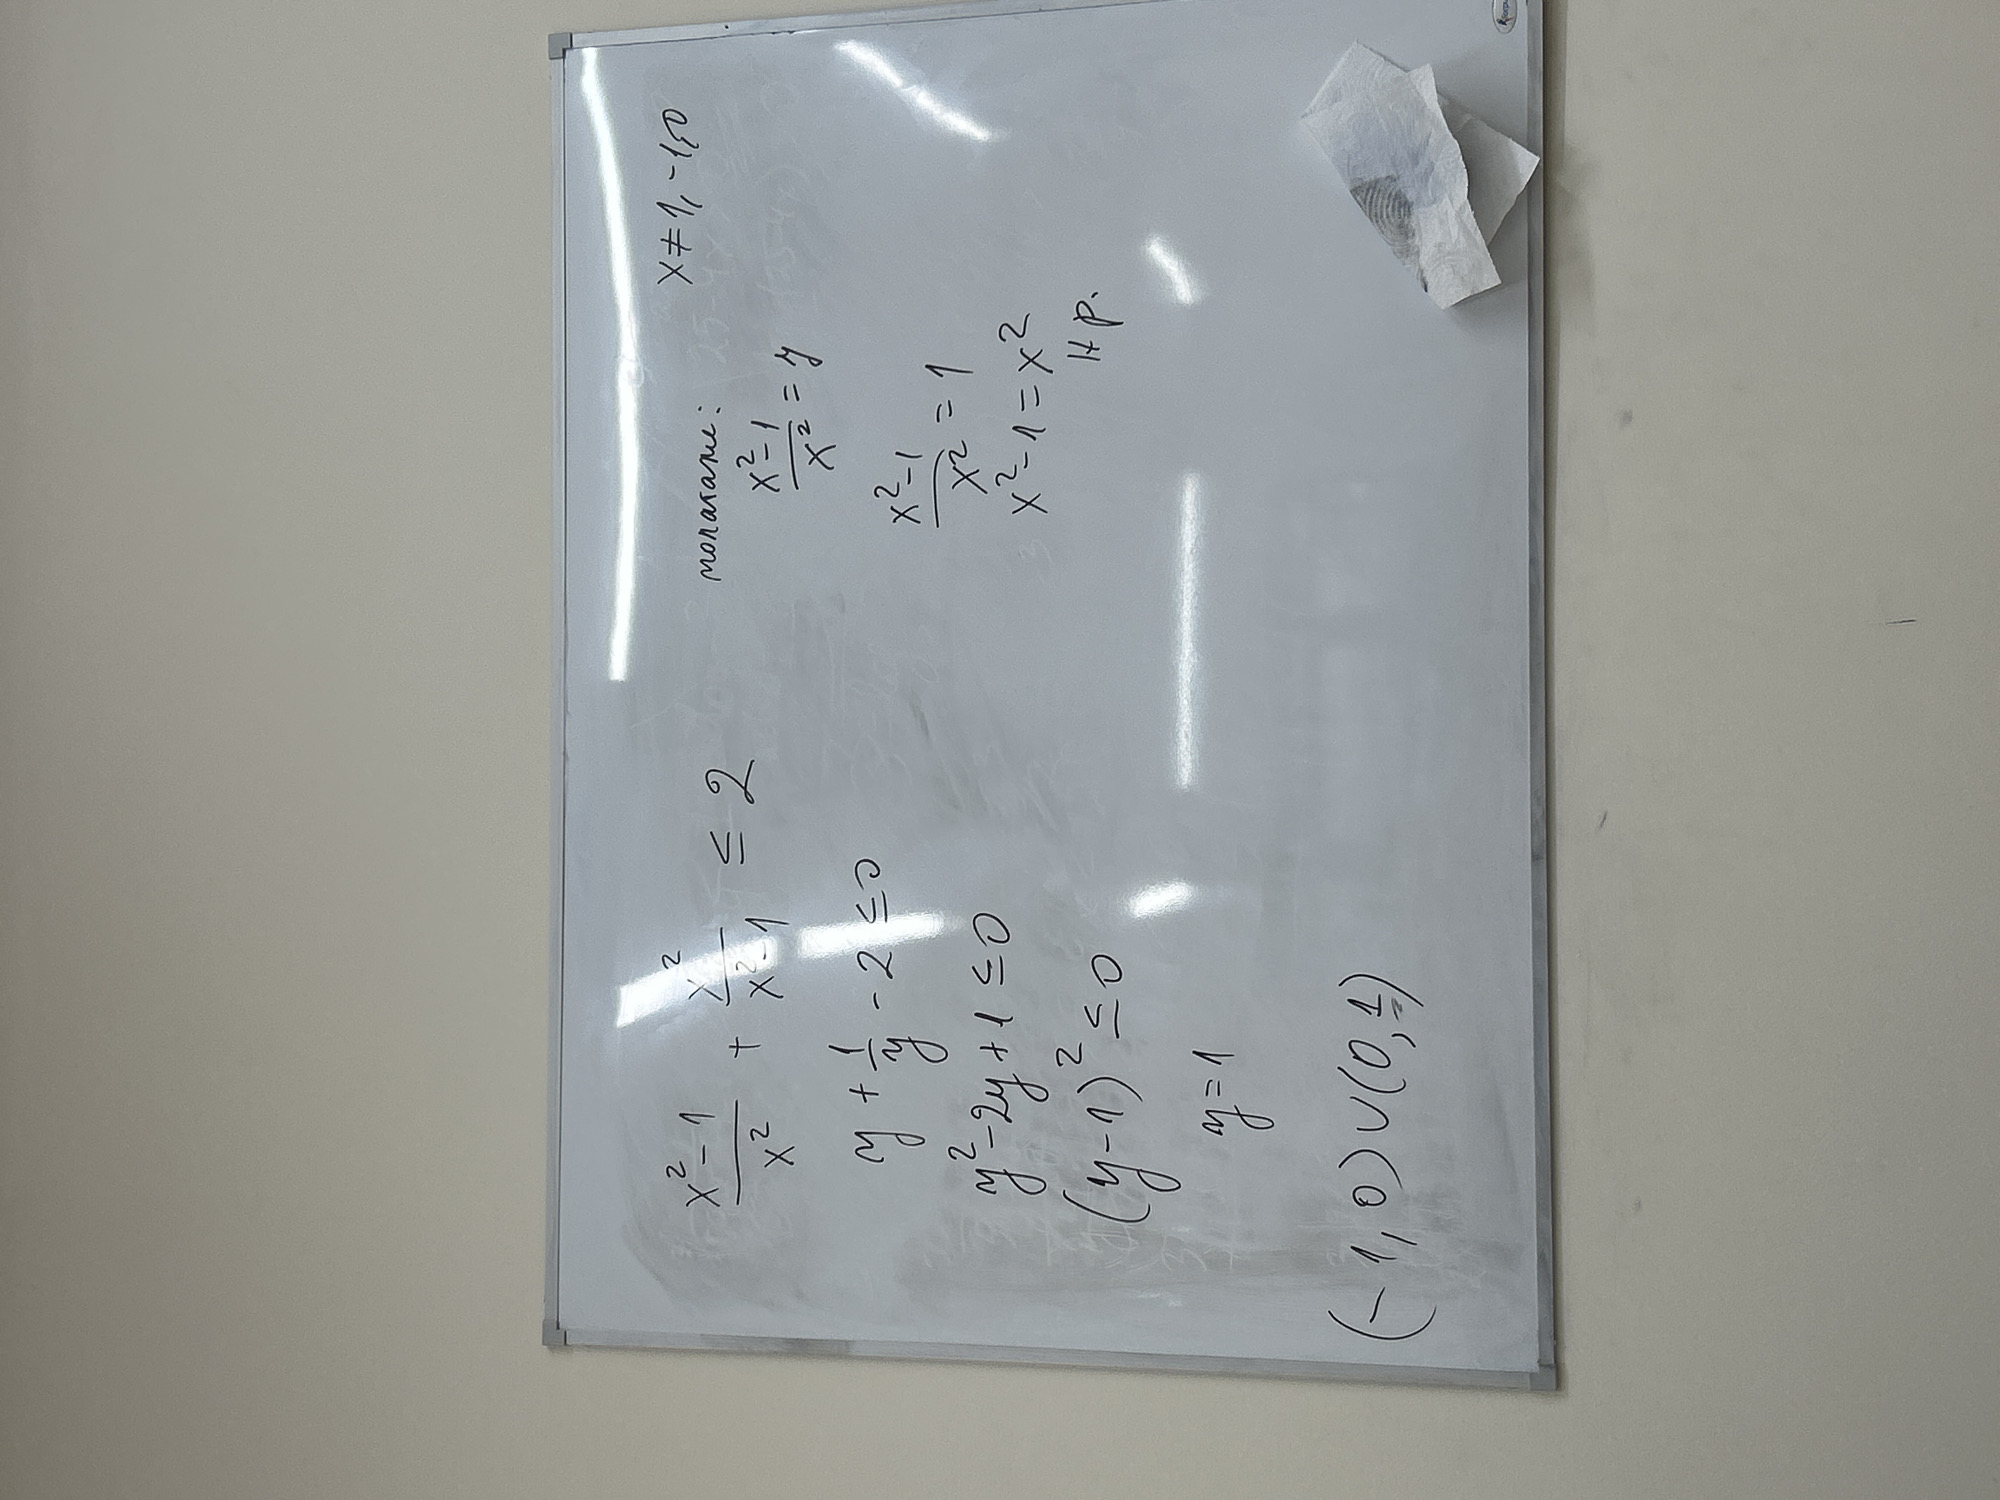 x² - 1 / x² + x² / x² - 1 ≤ 2
y + 1/y - 2 ≤ 0
y² - 2y + 1 ≤ 0
(y - 1)² ≤ 0
y = 1
(-1, 0) ∪ (0, 1)
полагаме:
x² - 1 / x² = y
x² - 1 / x² = 1
x² - 1 = x²
Н р.
x ≠ 1, -1, 0